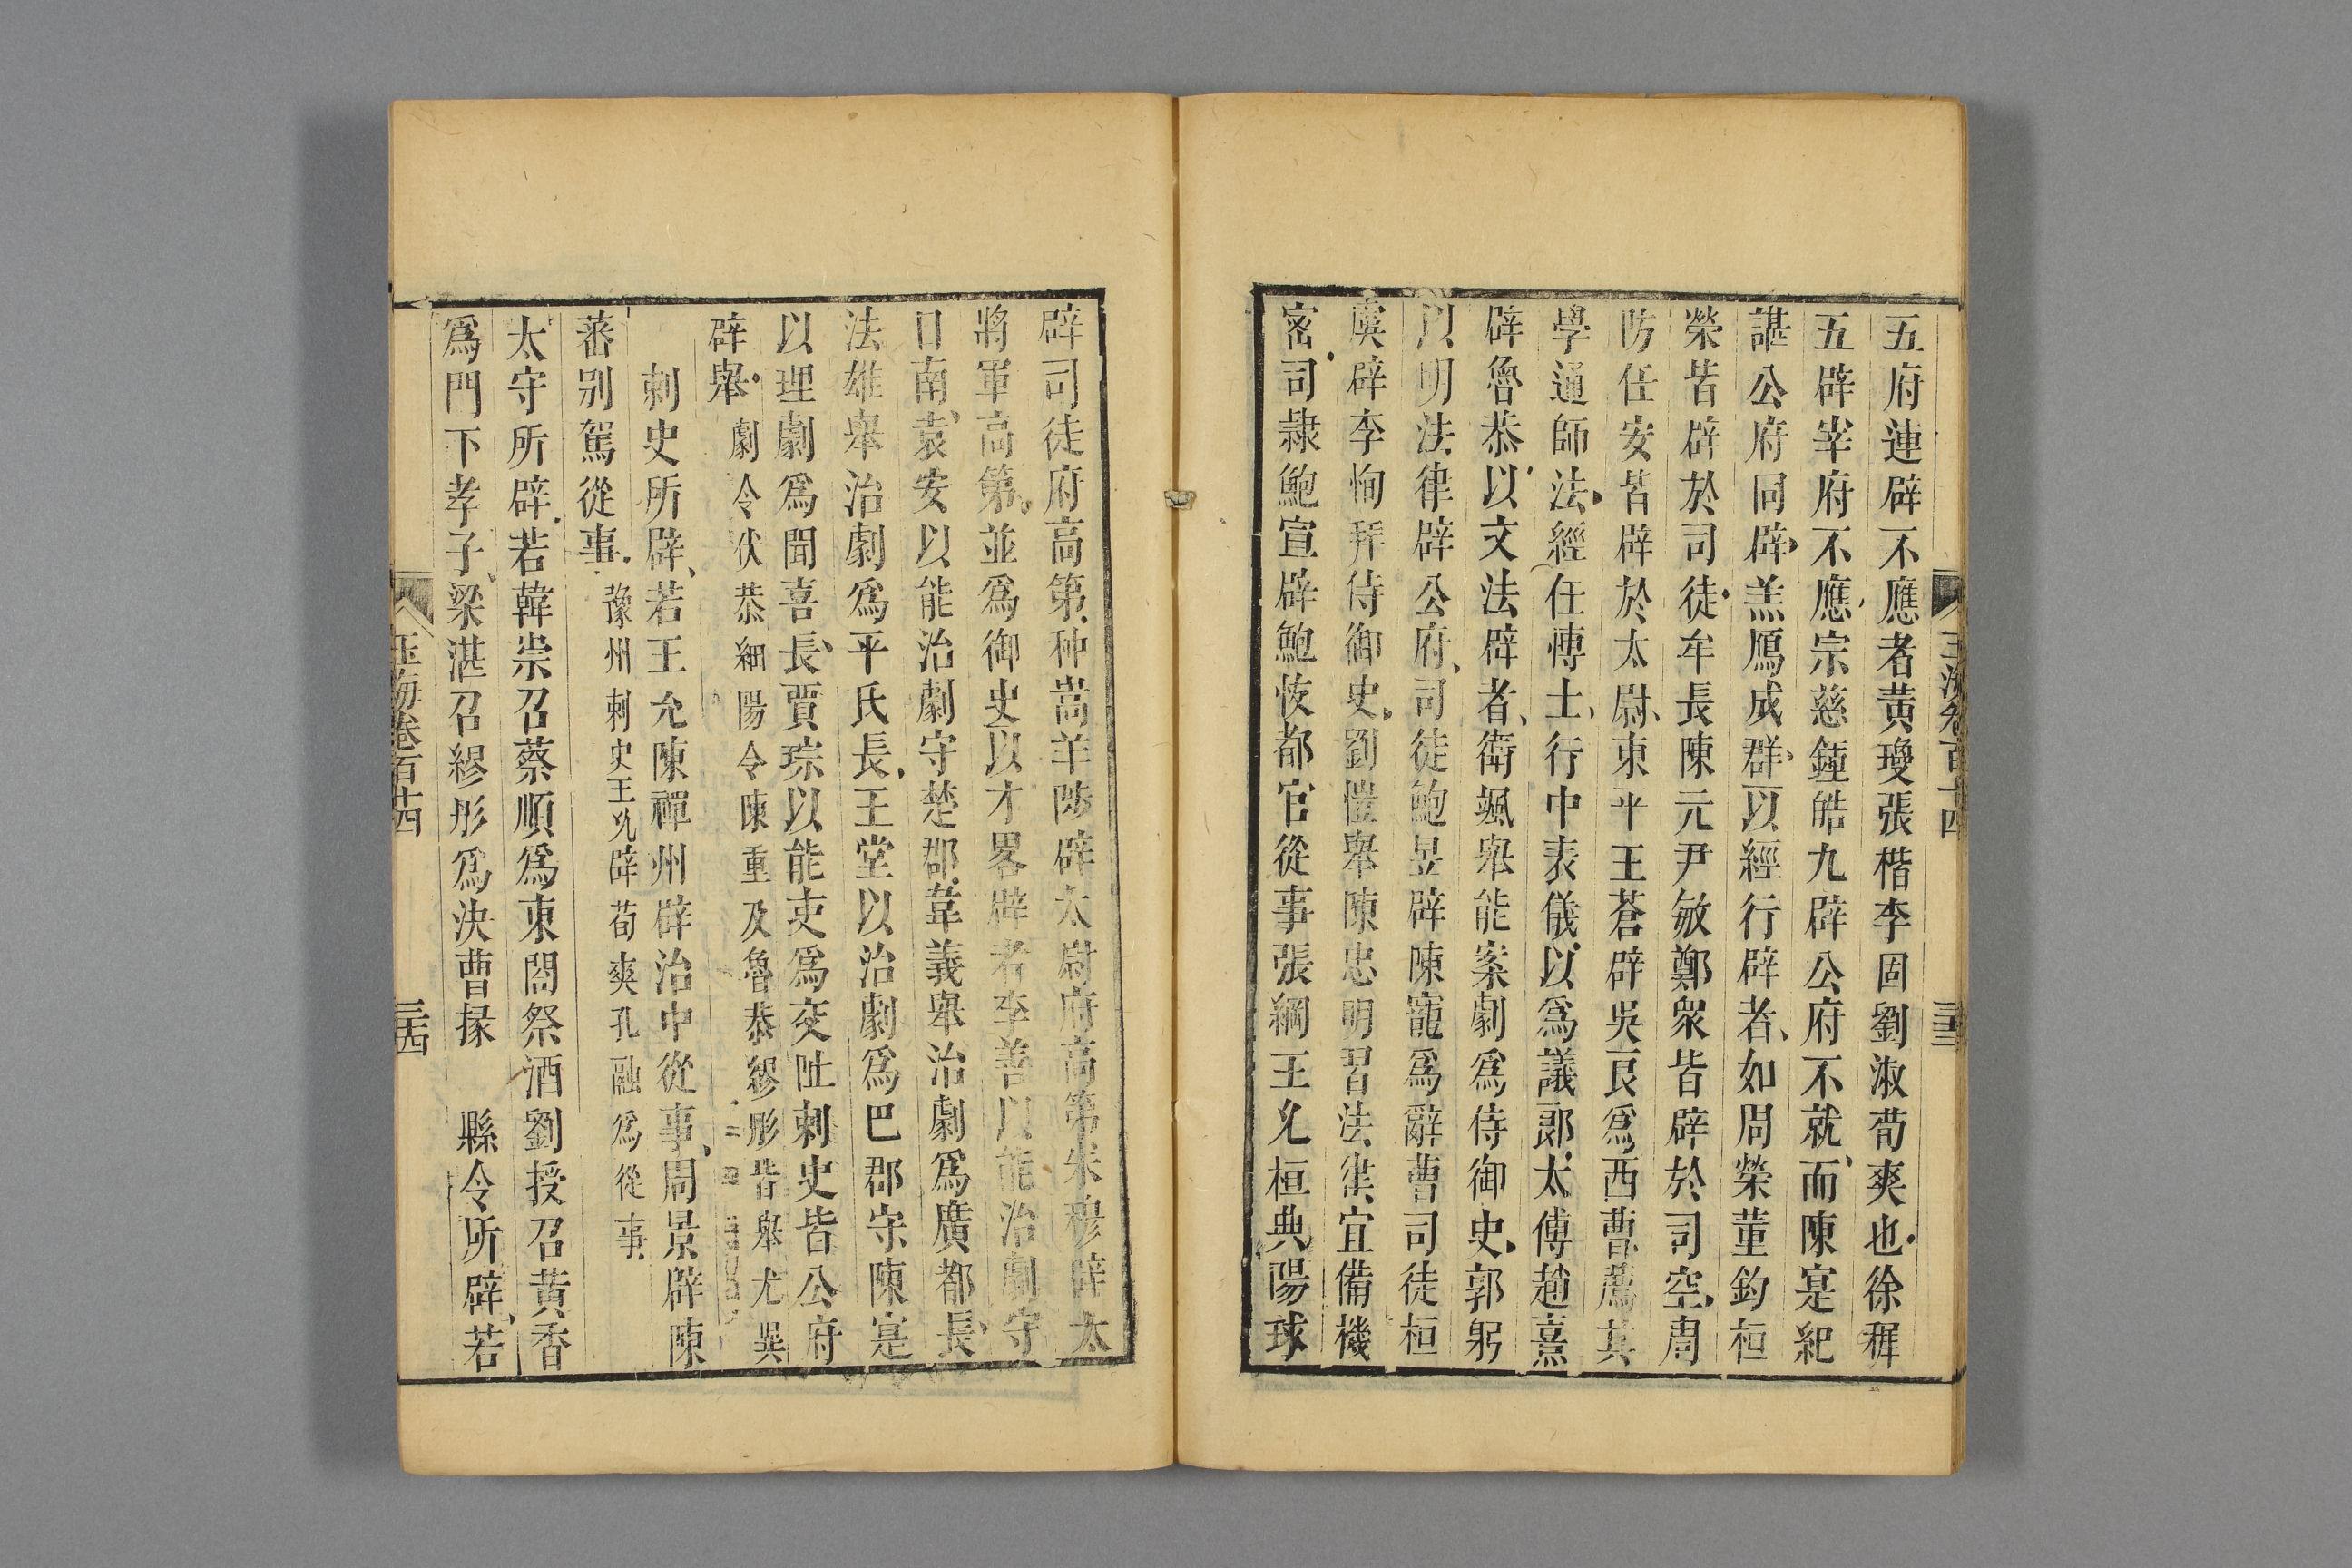 五府連辟不應者黃瓊張楷李固劉淑荀爽也徐稺
五辟宰府不應宗慈鍾皓九辟公府不就而陳寔紀
諶公府同辟羔鴈成群以經行辟者如周榮董鈞桓
榮皆辟於司徒牟長陳元尹敏鄭衆皆辟於司空周
防任安皆辟於太尉東平王蒼辟吳良爲西曹薦其
學通師法經任博士行中表儀以爲議郞太傅趙熹
辟魯恭以文法辟者衛颯舉能案劇爲侍御史郭躬
以明法律辟公府司徒鮑昱辟陳寵爲辭曹司徒桓
虞辟李恂拜侍御史劉愷舉陳忠明習法律宜備機
密司隷鮑宣辟鮑恢都官從事張綱王允桓典陽球
辟司徒府高第种暠羊陟辟太尉府高第朱穆辟太
將軍高第並爲御史以才畧辟者李善以能治劇守
日南袁安以能治劇守楚郡韋義舉治劇爲廣都長
法雄舉治劇爲平氏長王堂以治劇爲巴郡守陳寔
以理劇爲聞喜長賈琮以能吏爲交阯刺史皆公府
辟舉
劇令狀恭細陽令陳重及魯恭繆彤皆舉尤異
刺史所辟若王允陳禪州辟治中從事周景辟陳
蕃别駕從事
豫州刺史王允辟荀爽孔融爲從事
太守所辟若韓崇召蔡順爲東閤祭酒劉授召黃香
爲門下孝子梁湛召繆彤爲決曹掾 縣令所辟若
玉海卷百十四
三十四